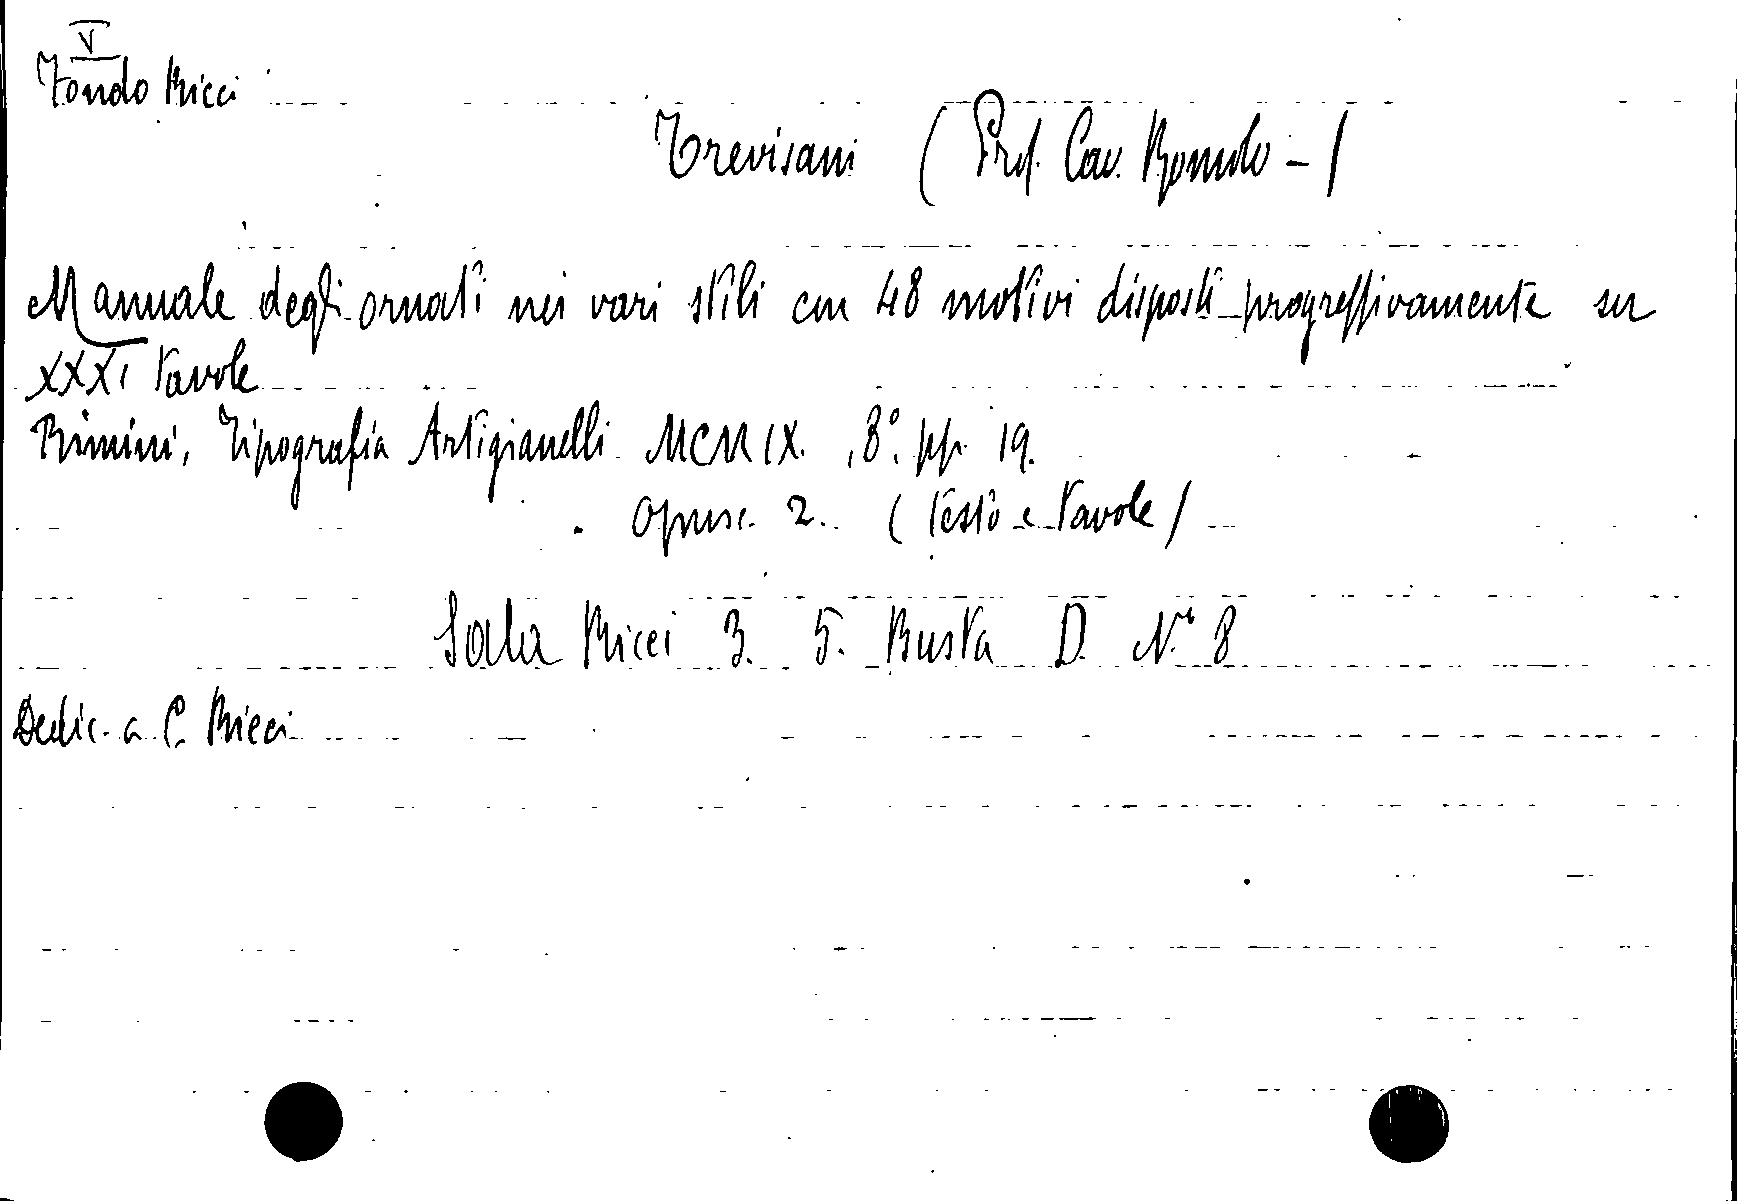 V
Fondo Ricci
Trevisani (Prof. Cav. Romolo -)
Manuale degli ornati nei vari stili con 48 motivi disposti progressivamente su
XXXI tavole
Rimini, Tipografia Artigianelli MCMIX. , 8°. pp. 19.
Opusc. 2. (testo e tavole)
Sala Ricci 3. 5. Busta D. N. 8
Dedic. a C. Ricci